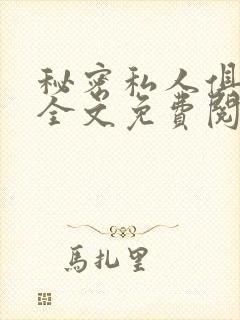 秘密私人俱
全文免費閱
馬扎里